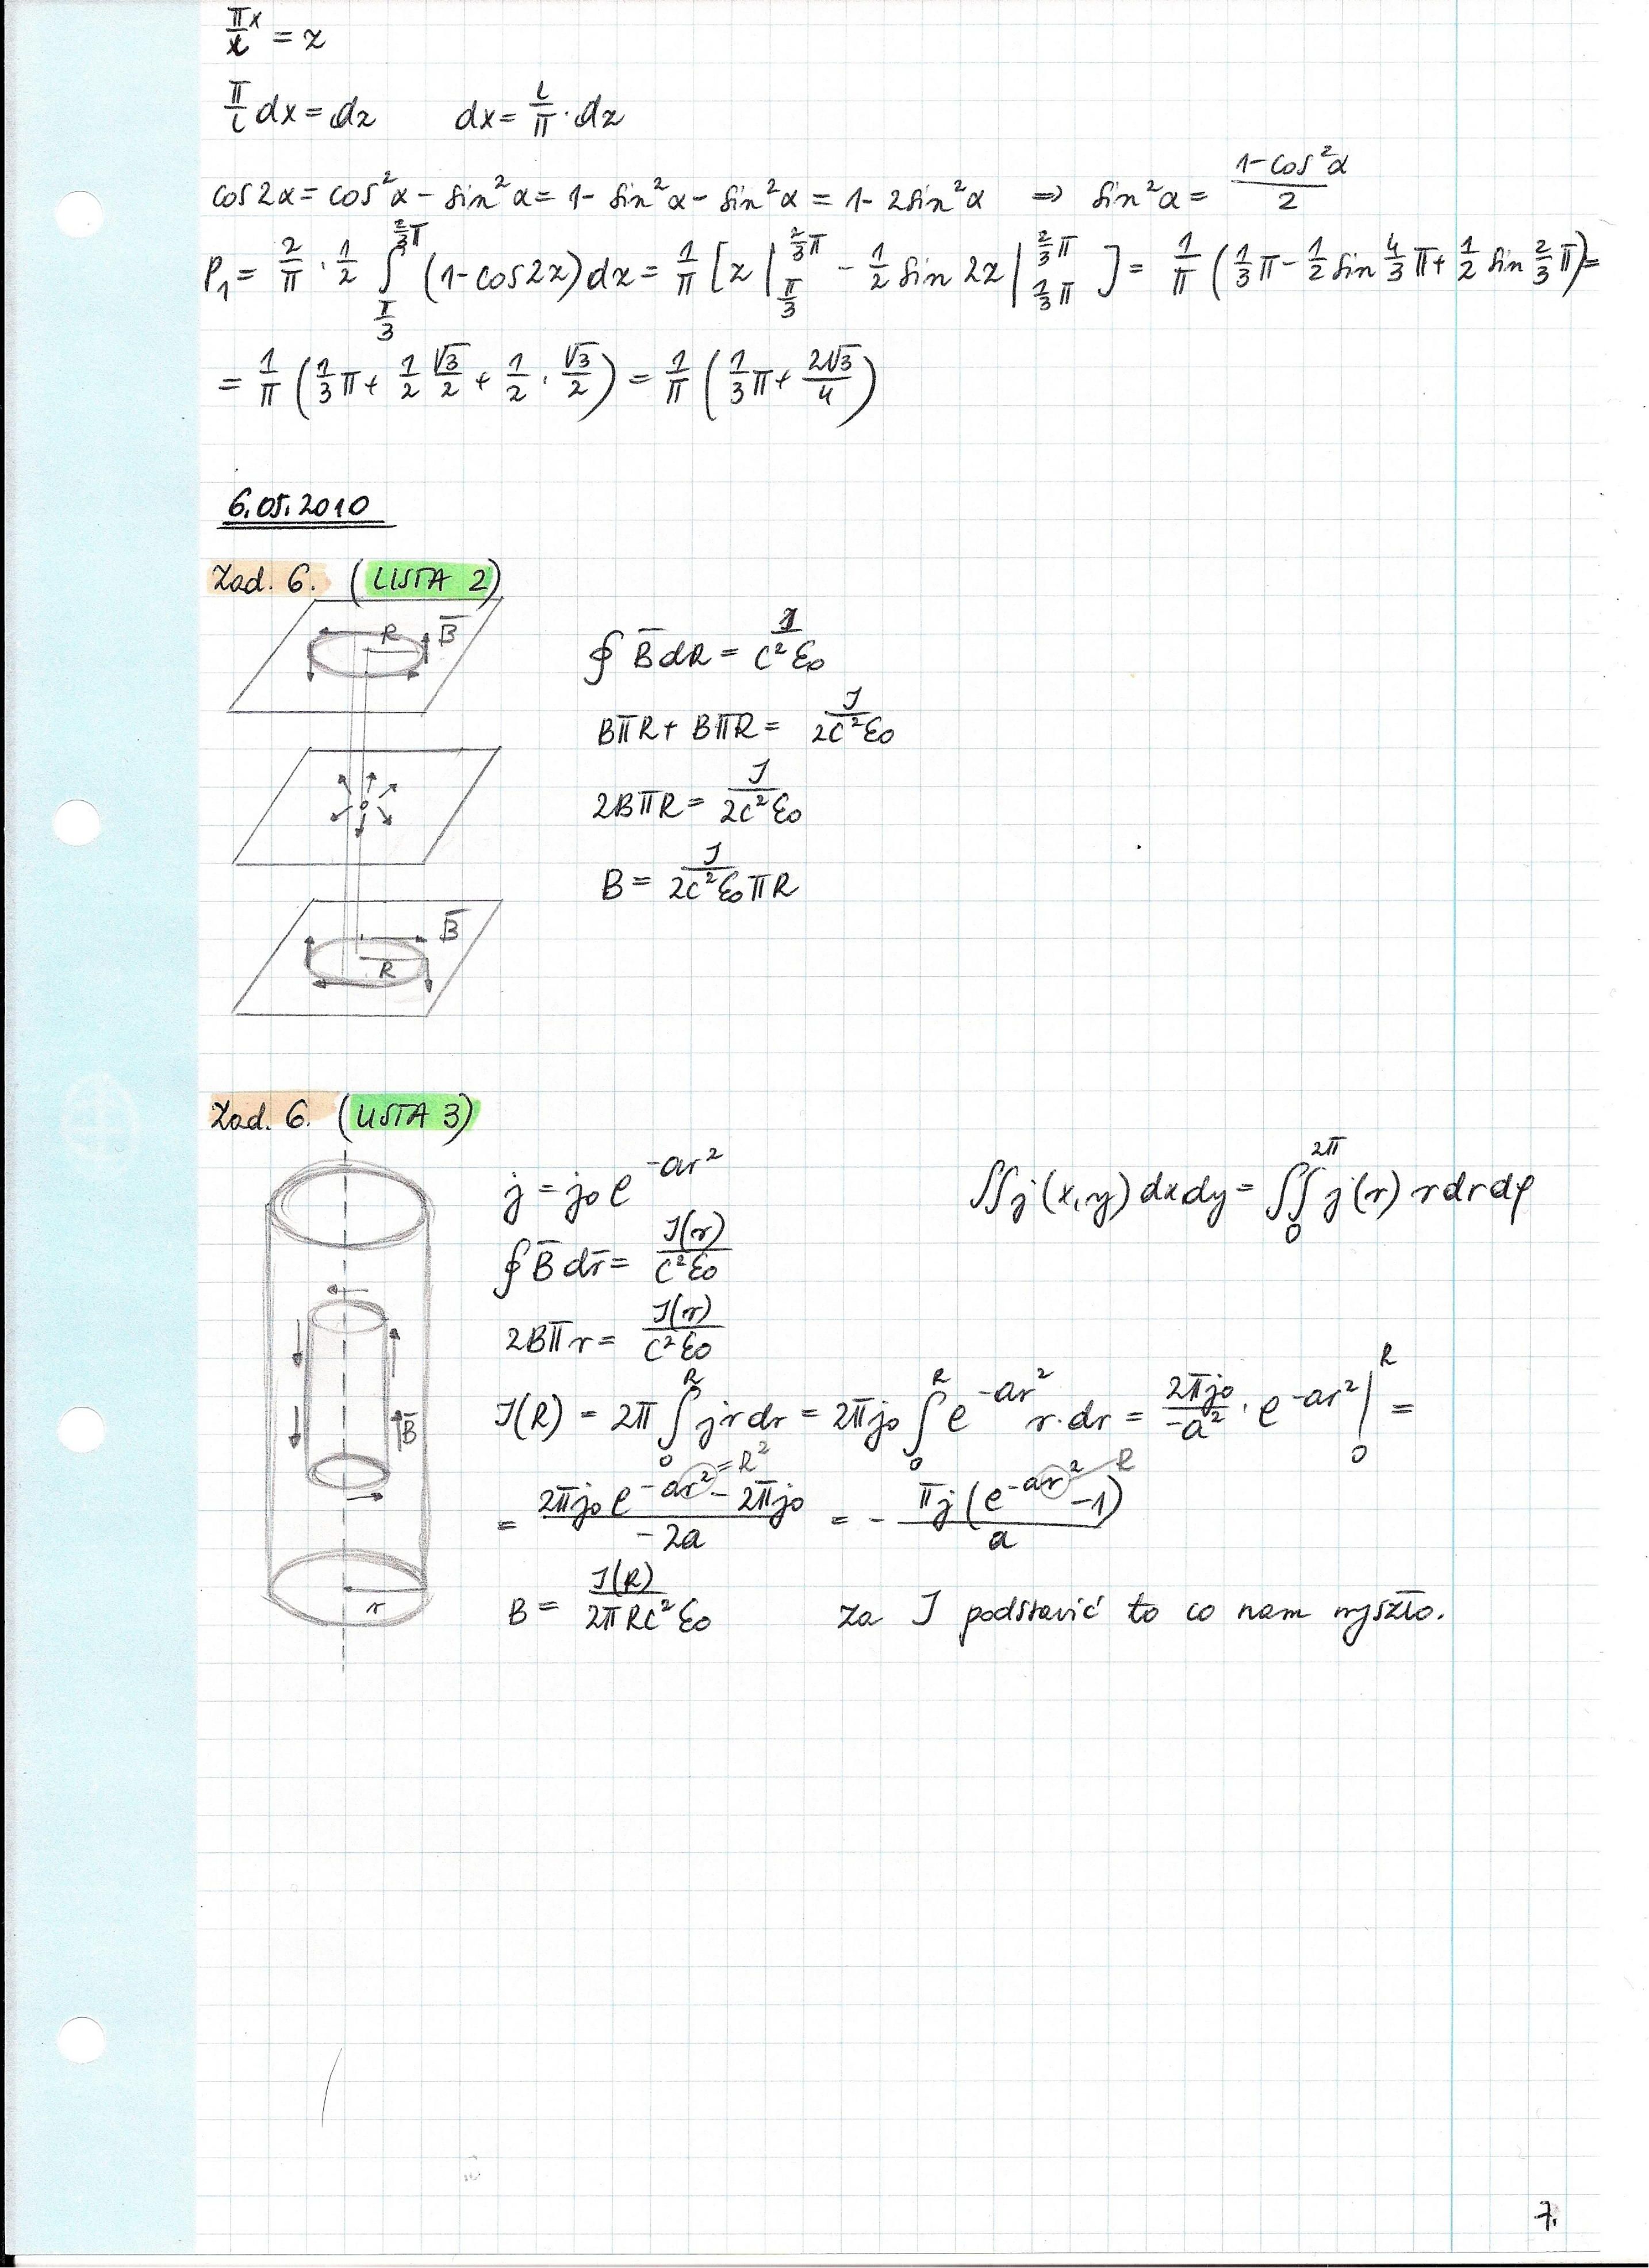 πx/x = z
π/l dx = dz    dx = l/π · dz
cos2α = cos²α - sin²α = 1 - sin²α - sin²α = 1 - 2sin²α ⇒ sin²α = (1-cos²α)/2
P₁ = 2/π · 1/2 ∫_{π/3}^{2/3π} (1-cos2z)dz = 1/π [z|_{π/3}^{2/3π} - 1/2 sin2z|_{1/3π}^{2/3π}] = 1/π (1/3π - 1/2 sin 4/3π + 1/2 sin 2/3π) =
= 1/π (1/3π + 1/2 √3/2 + 1/2 · √3/2) = 1/π (1/3π + 2√3/4)
6.05.2010
Zad. 6. (LISTA 2)
R B̄
∮ B̄dR = J/(c²ε₀)
BπR + BπR = J/(2c²ε₀)
2BπR = J/(2c²ε₀)
B = J/(2c²ε₀πR)
B̄
R
Zad. 6. (LISTA 3)
j = j₀e^{-ar²}    ∬j(x,y)dxdy = ∬_0^{2π} j(r) r dr dφ
∮ B̄dr̄ = J(r)/(c²ε₀)
2Bπr = J(r)/(c²ε₀)
J(R) = 2π ∫_0^R jrdr = 2πj₀ ∫_0^R e^{-ar²} r·dr = 2πj₀/(-a²) · e^{-ar²}|_0^R =
B̄
= (2πj₀e^{-ar² = R²} - 2πj₀)/(-2a) = - πj(e^{-ar²} - 1)/a    R
B = J(R)/(2πRc²ε₀)    za J podstawić to co nam wyszło.
r
7.